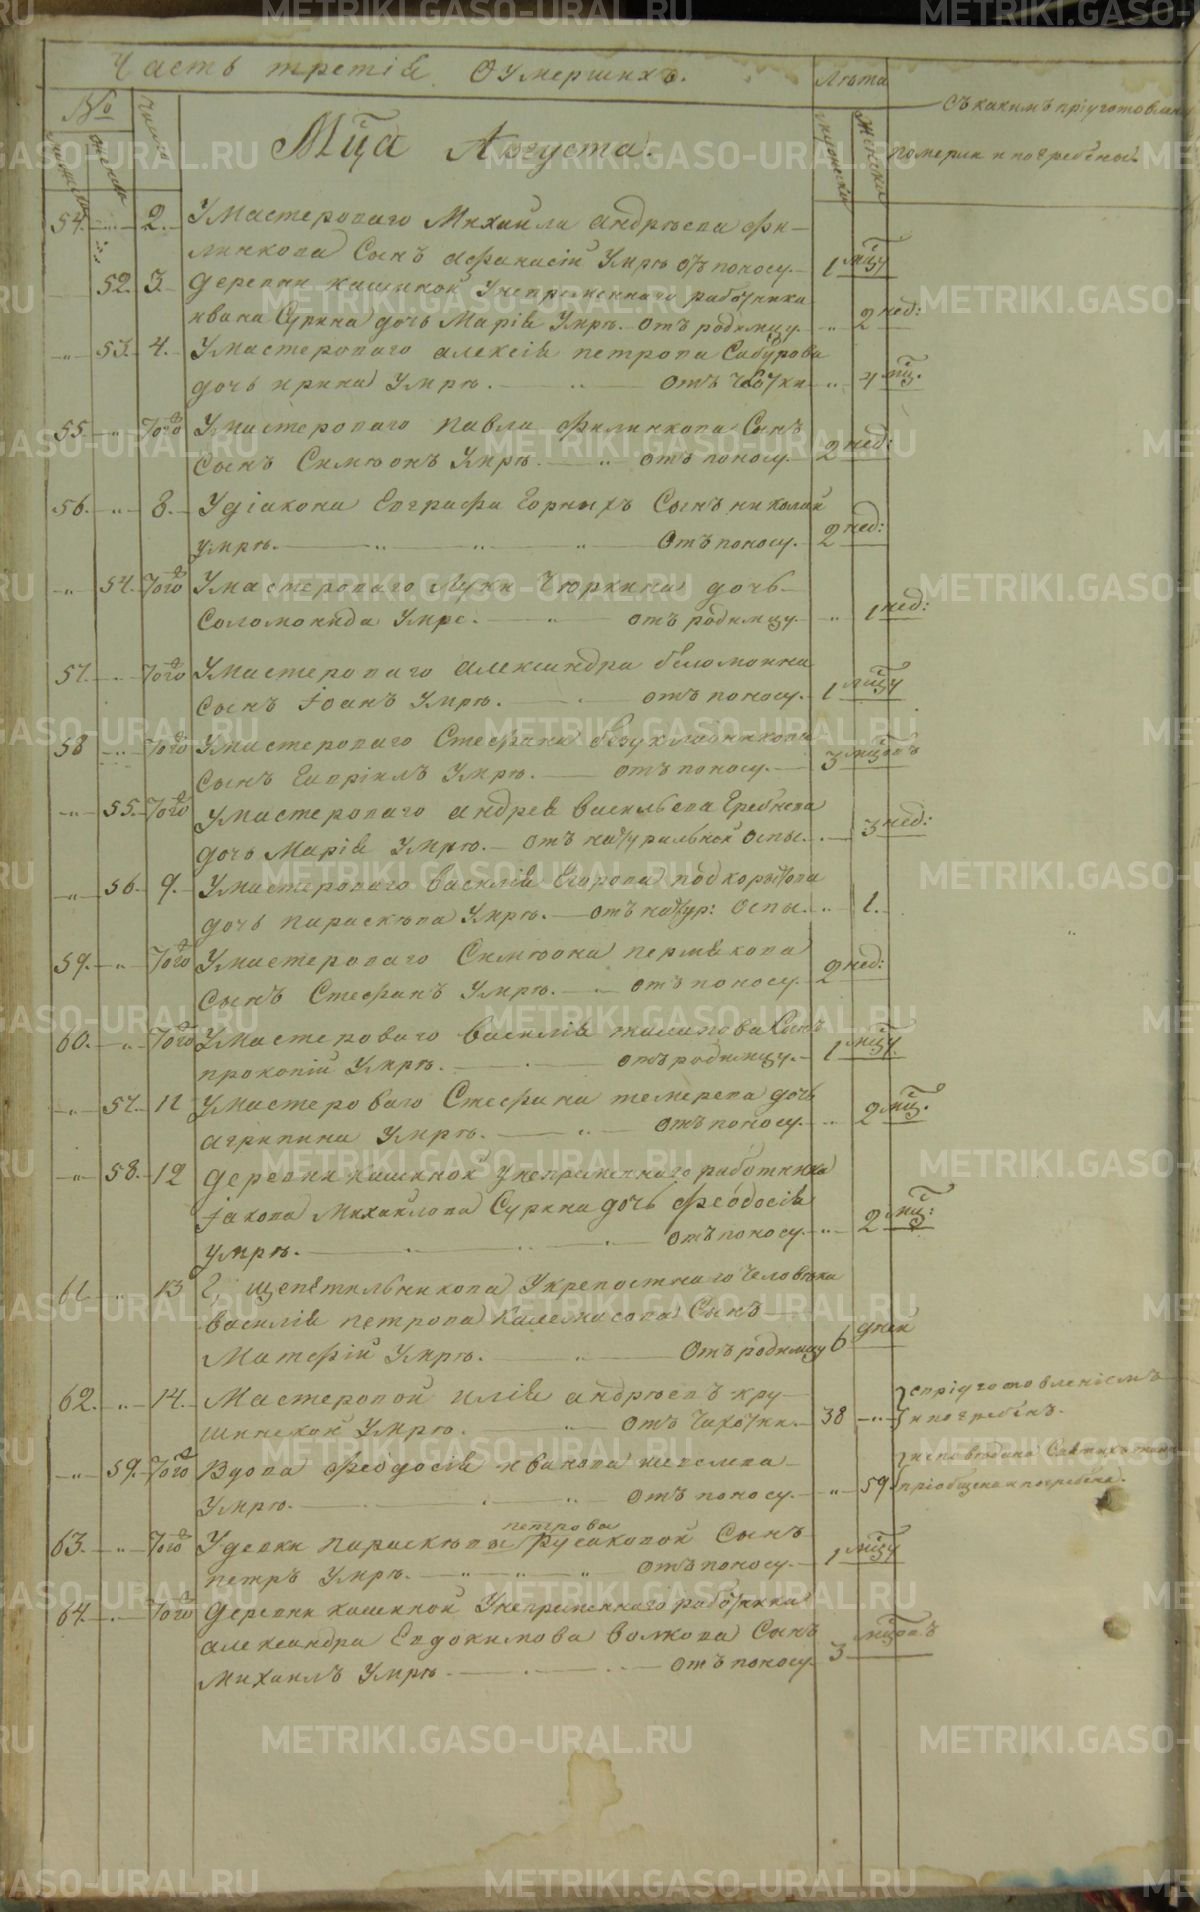 Часть третія О умершихъ.
Лѣта
№
Число
съ какимъ пріуготовлен
Мц̃а Августа.
померли и погребены.
54. 2. У Мастероваго Михайла Андрѣева Фи-
линкова Сынъ Афанасій Умре отъ поносу. 1 мцу
52. 3. Деревни кашиной Унепременнаго работника
ивана Сурина дочь Марія Умре. Отъ родимцу 2 нед:
53. 4. У мастероваго алексія петрова Сабурова
дочь ирина Умре. Отъ чахотки 4 мц.
55. Того У мастероваго павла Филинкова Сынъ
Сынъ Симеонъ Умре. отъ поносу. 2 нед:
56. 8. У діакона Евграфа Горныхъ Сынъ николай
умре. Отъ поносу. 2 нед:
54. Того У мастероваго Луки Чюркина дочь
Соломонида Умре. отъ родимцу 1 нед:
57. Того У мастероваго александра
сынъ Іоанъ Умре. отъ поносу. 1 мцу
58 Того У мастероваго Стефана безукладникова
сынъ Гавріилъ Умре. отъ поносу. 3 мцовъ
55. Того У мастероваго андрея васильева Гребнева
дочь Марія Умре. отъ натуральной оспы. 3 нед:
56. 9. У мастероваго василія Егорова подкорытова
дочь параскева Умре. отъ натур: оспы. 1.
59. Того У мастероваго Симеона пермякова
сынъ Стефанъ Умре. отъ поносу. 2 нед:
60. Того У Мастероваго василія Сынъ
прокопій Умре. отъ родимцу. 1 мцу.
57. 11 У мастероваго Стефана темерева дочь
агрипина Умре. отъ поносу. 2 мц.
58. 12 Деревни кашиной Унепременнаго работника
Іакова Михаилова Сурина дочь Феодосія
умре. отъ поносу. 2 мц:
61. 13 Г, щепетильникова Укрепостнаго человѣка
василія петрова Сынъ
Матфій Умре. Отъ родимцу 6 дней
62. 14. Мастеровой илія андрѣевъ кру-
шинской Умре. Отъ Чахотки. 38 спріуготовленіемъ
и погребенъ.
59. Того Вдова Феодосія иванова шевелева
Умре. отъ поносу. 59 исповѣдана Святыхъ таин
пріобщена и погребена.
63. Того У девки параскевы петрова Русаковой Сынъ
петръ Умре. отъ поносу. 1 мцу
64. Того Деревни кашиной Унепременнаго работника
александра Евдокимова волкова Сынъ
михаилъ Умре отъ поносу. 3 мцовъ
METRIKI.GASO-URAL.RU